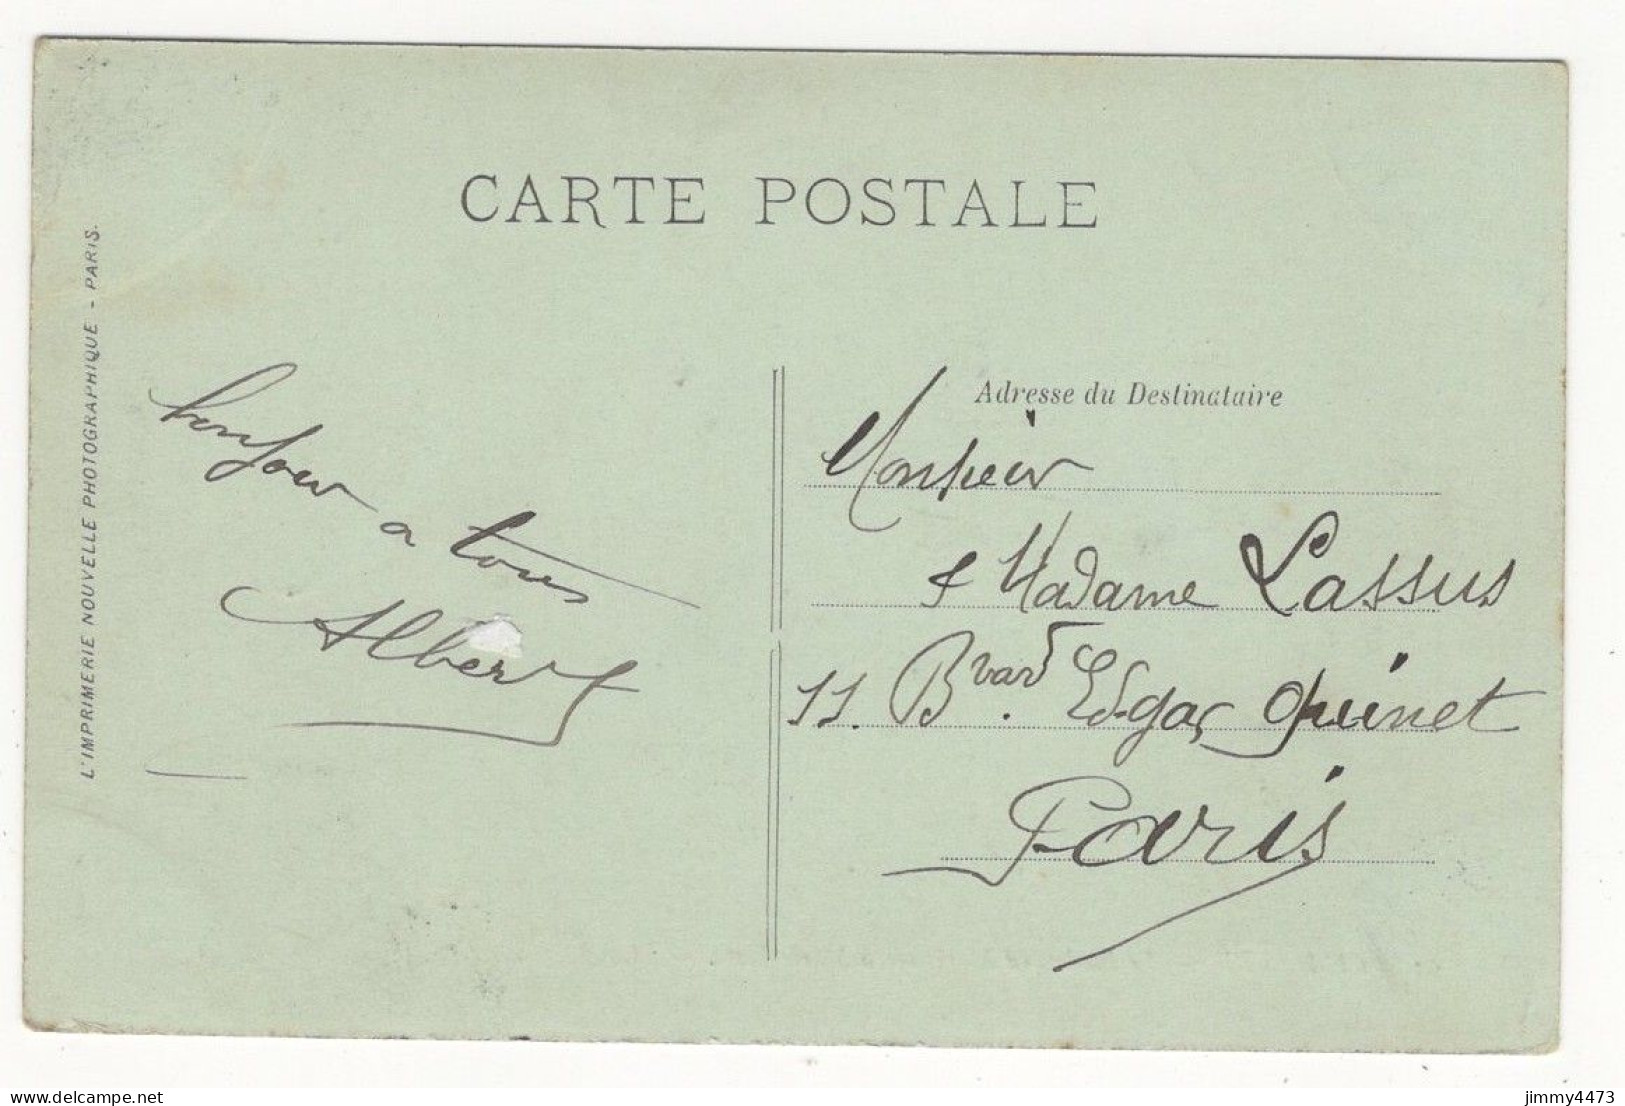 CARTE POSTALE
L'IMPRIMERIE NOUVELLE PHOTOGRAPHIQUE - PARIS.
bonjour a tous
Albert
Adresse du Destinataire
Monsieur
& Madame Lassus
11. Bvard. Edgar Quinet
Paris
delcampe.net
jimmy4473